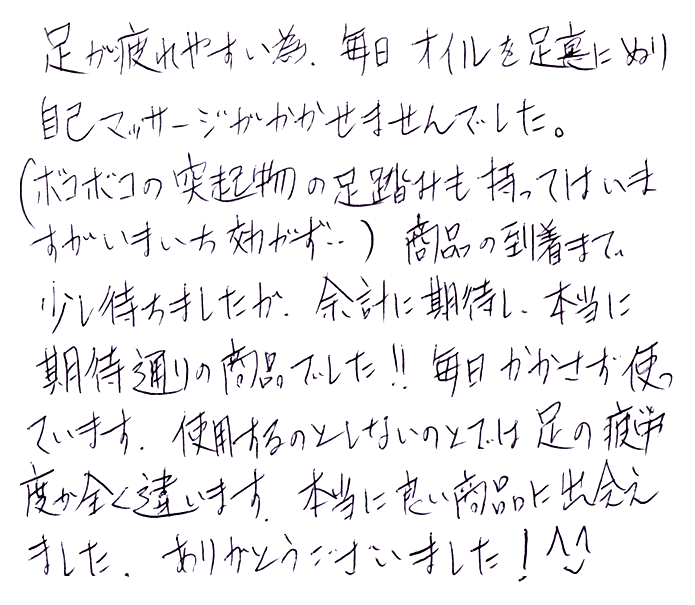 足が疲れやすい為、毎日 オイルを足裏にぬり
自己マッサージがかかせませんでした。
(ボコボコの突起物の足踏みも持ってはいま
すがいまいち効かず‥) 商品の到着まで、
少し待ちましたが、余計に期待し、本当に
期待通りの商品でした!! 毎日かかさず使っ
ています。使用するのとしないのとでは足の疲労
度が全く違います。本当に良い商品に出会え
ました。ありがとうございました! ^^